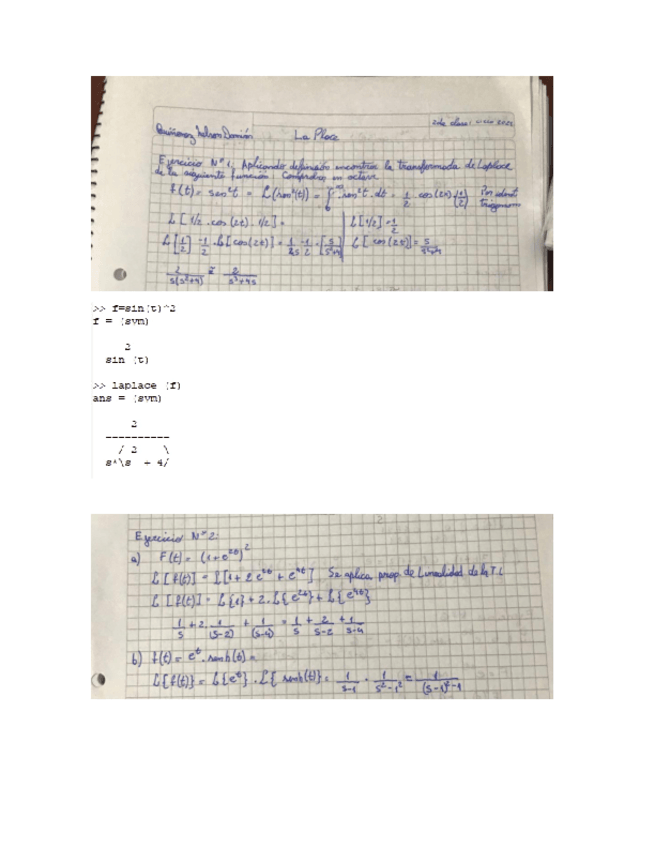 La Place
Ejercicio N° 1: Aplicando definición encontrar la transformada de Laplace
de la siguiente función. Comprobar en octave
f(t) = sen²t = L(sen²(t)) = ∫ sen²t . dt = 1/2 . cos(2t)
L[1/2 . cos(2t) . 1/2] = L[1/2] = 1/2
L[1/2] - 1/2 . L[cos(2t)] = 1/2s - 1/2 . [s/s²+4] L[cos(2t)] = s/s²+4
2/s(s²+4) = 2/s³+4s
>> f=sin(t)^2
f = (sym)
2
sin (t)
>> laplace (f)
ans = (sym)
2
----------
/ 2 \
s*\s + 4/
Ejercicio N° 2:
a) F(t) = (1+e^2t)^2
L[f(t)] = L[1 + 2e^2t + e^4t] Se aplica prop de Linealidad de la T.L
L[f(t)] = L{1} + 2.L{e^2t} + L{e^4t}
1/s + 2.1/(s-2) + 1/(s-4) = 1/s + 2/s-2 + 1/s-4
b) f(t) = e^t . senh(t) =
L{f(t)} = L{e^t} . L{senh(t)} = 1/s-1 . 1/s²-1² = 1/(s-1)²-1